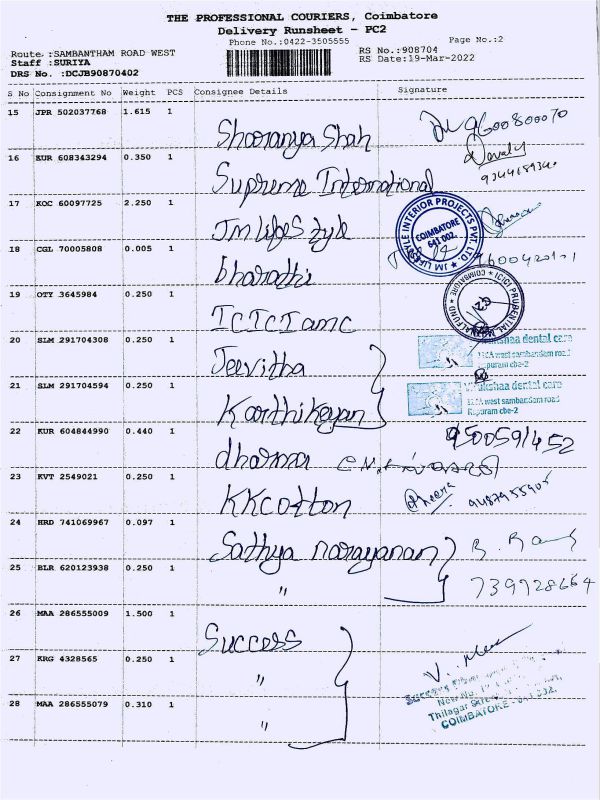 THE PROFESSIONAL COURIERS, Coimbatore
Delivery Runsheet - PC2
Phone No.:0422-3505555
Page No.:2
Route :SAMBANTHAM ROAD WEST
RS No.:908704
Staff :SURIYA
RS Date:19-Mar-2022
DRS No. :DCJB90870402
S No Consignment No Weight PCS Consignee Details Signature
15 JPR 502037768 1.615 1 Sharanya Shah 9600800070
16 KUR 608343294 0.350 1 Supreme International
17 KOC 60097725 2.250 1 Jm lifestyle
JM LIFESTYLE INTERIOR PROJECTS PVT. LTD.
COIMBATORE
641 002.
18 CGL 70005808 0.005 1 bharathi
19 OTY 3645984 0.250 1 ICICI amc
ICICI PRUDENTIAL MUTUAL FUND
COIMBATORE
20 SLM 291704308 0.250 1 Jeevitha
dental care
west sambandam road
puram cbe-2
21 SLM 291704594 0.250 1 Karthikeyan
dental care
west sambandam road
puram cbe-2
22 KUR 604844990 0.440 1 dharma
9500591452
23 KVT 2549021 0.250 1 KK cotton
24 HRD 741069967 0.097 1 Sathya narayanan
25 BLR 620123938 0.250 1 "
26 MAA 286555009 1.500 1 Success
27 KRG 4328565 0.250 1 "
Thilagar
COIMBATORE
28 MAA 286555079 0.310 1 "